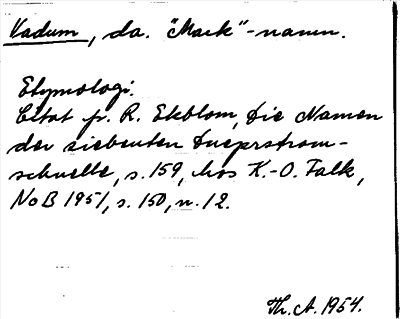 Vadum, da. "Mark"-navn.
Etymologi.
Citat fr. R. Ekblom, Die Namen
der siebenten Dneprstrom-
schnelle, s. 159, hos K.-O. Falk,
NoB 1951, s. 150, n. 12.
Th. A. 1954.